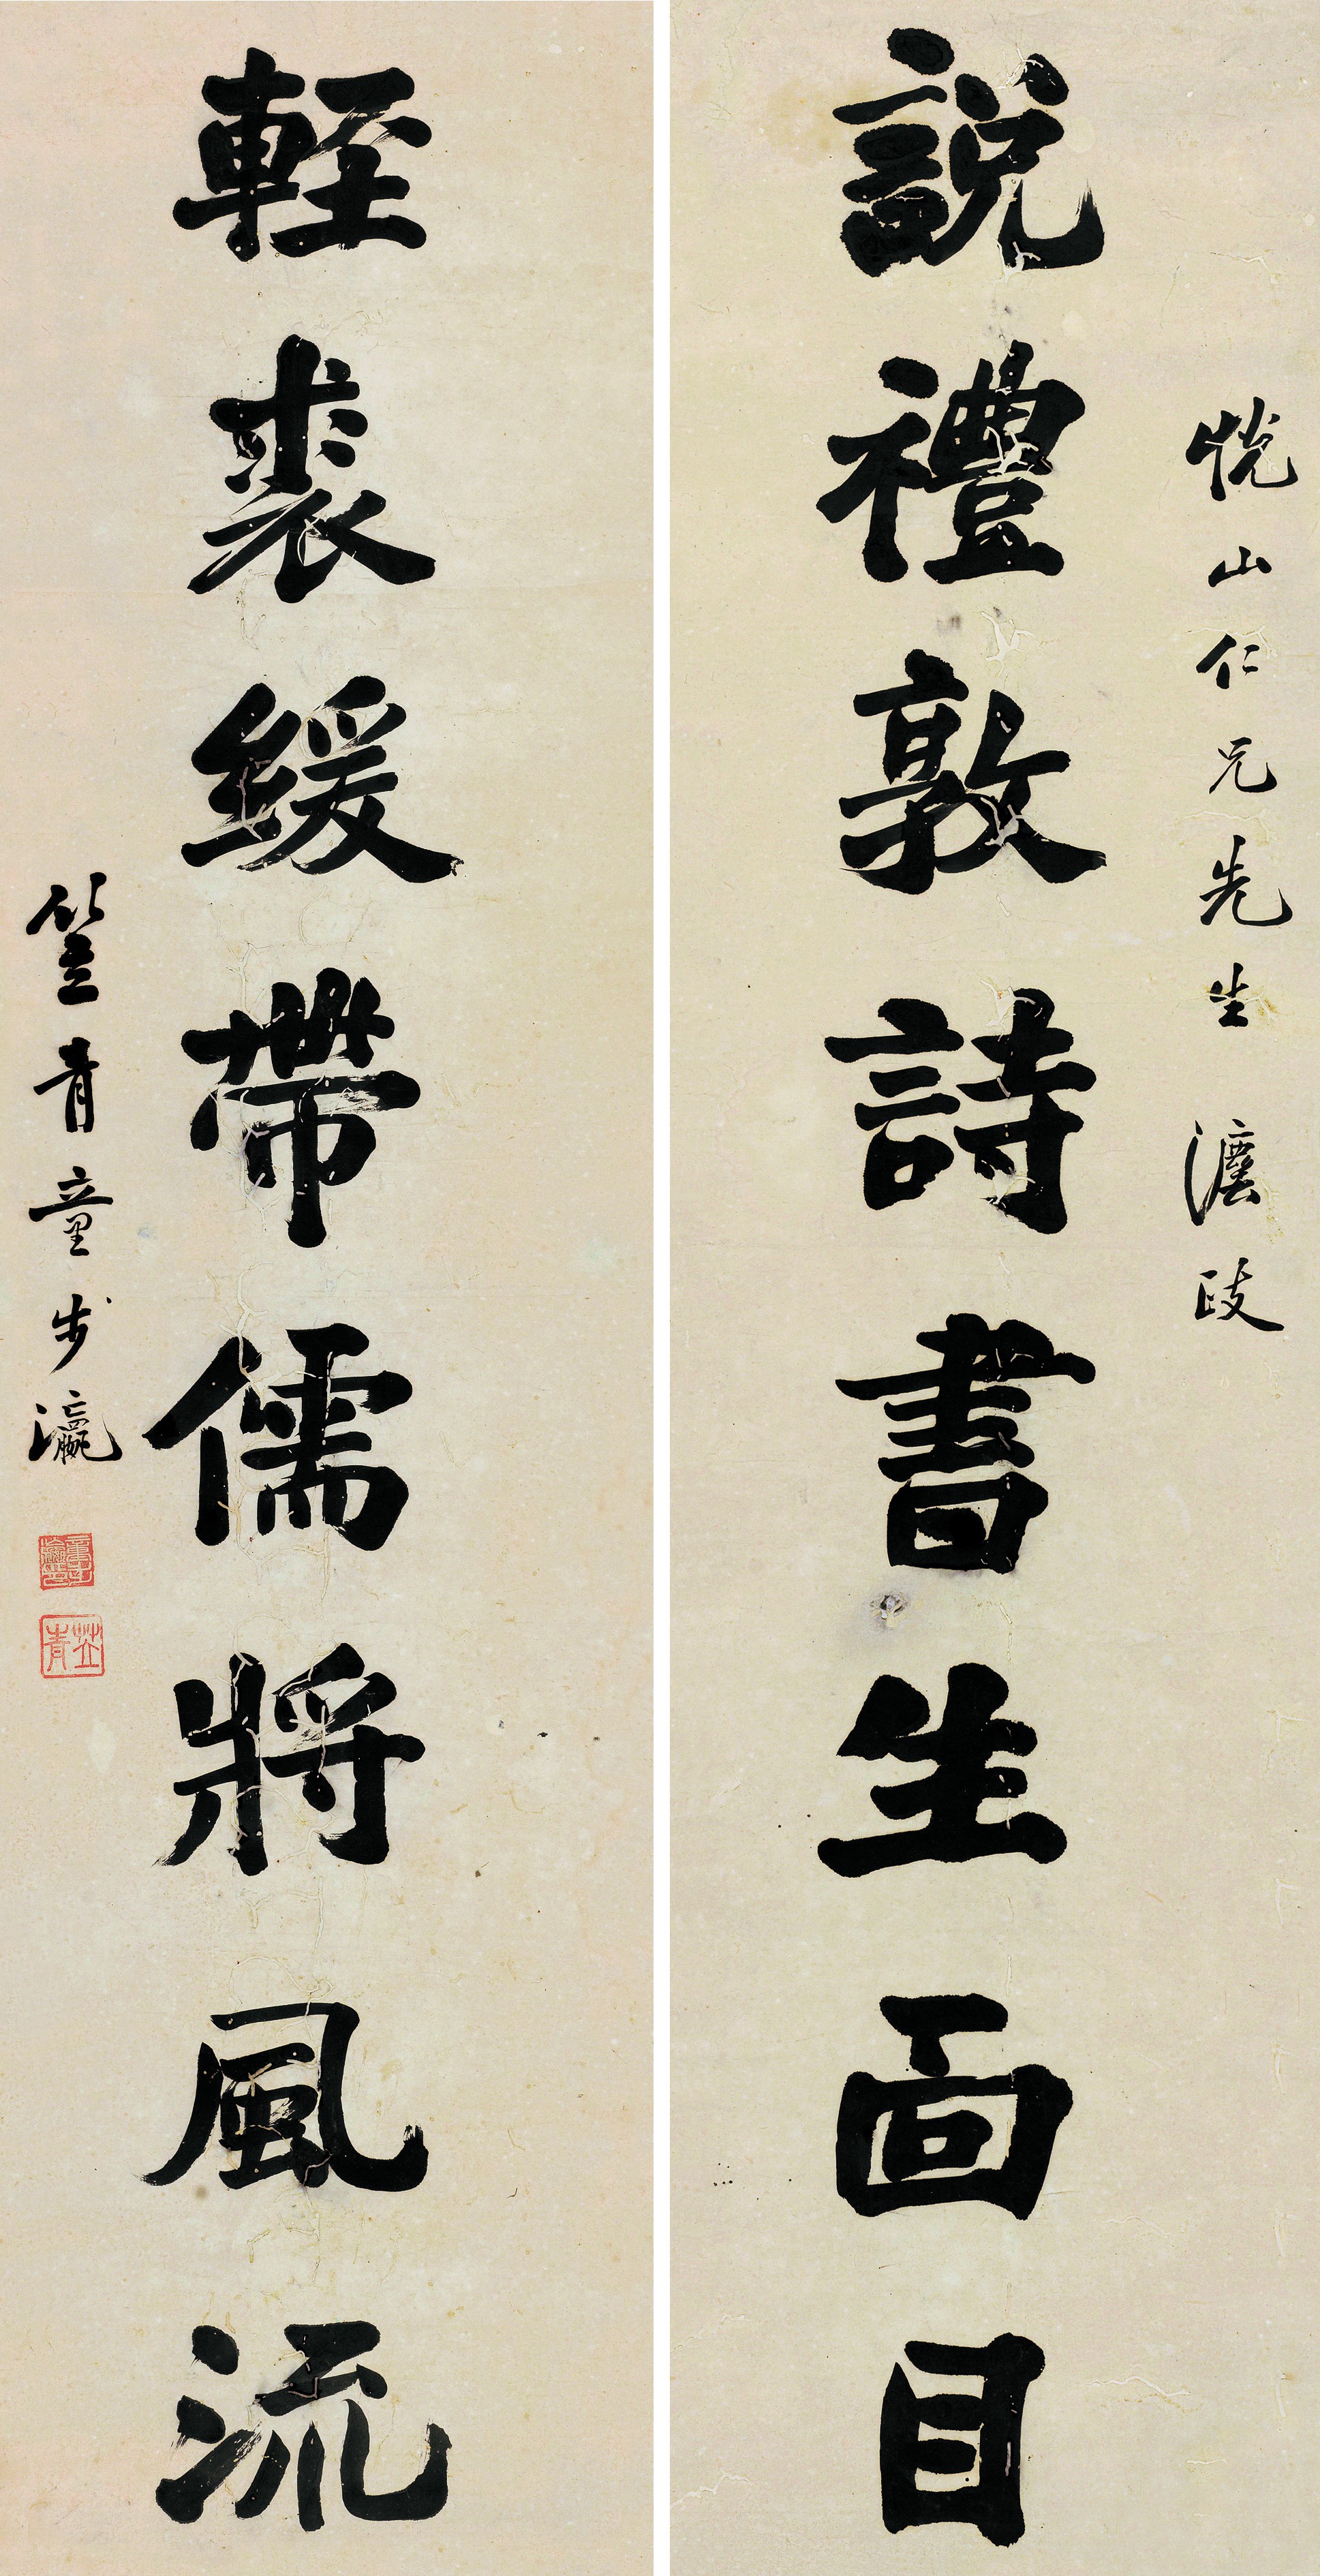 悅山仁兄先生 瀍政
說禮敦詩書生面目
輕裘緩帶儒將風流
笠青童步瀛
笠青